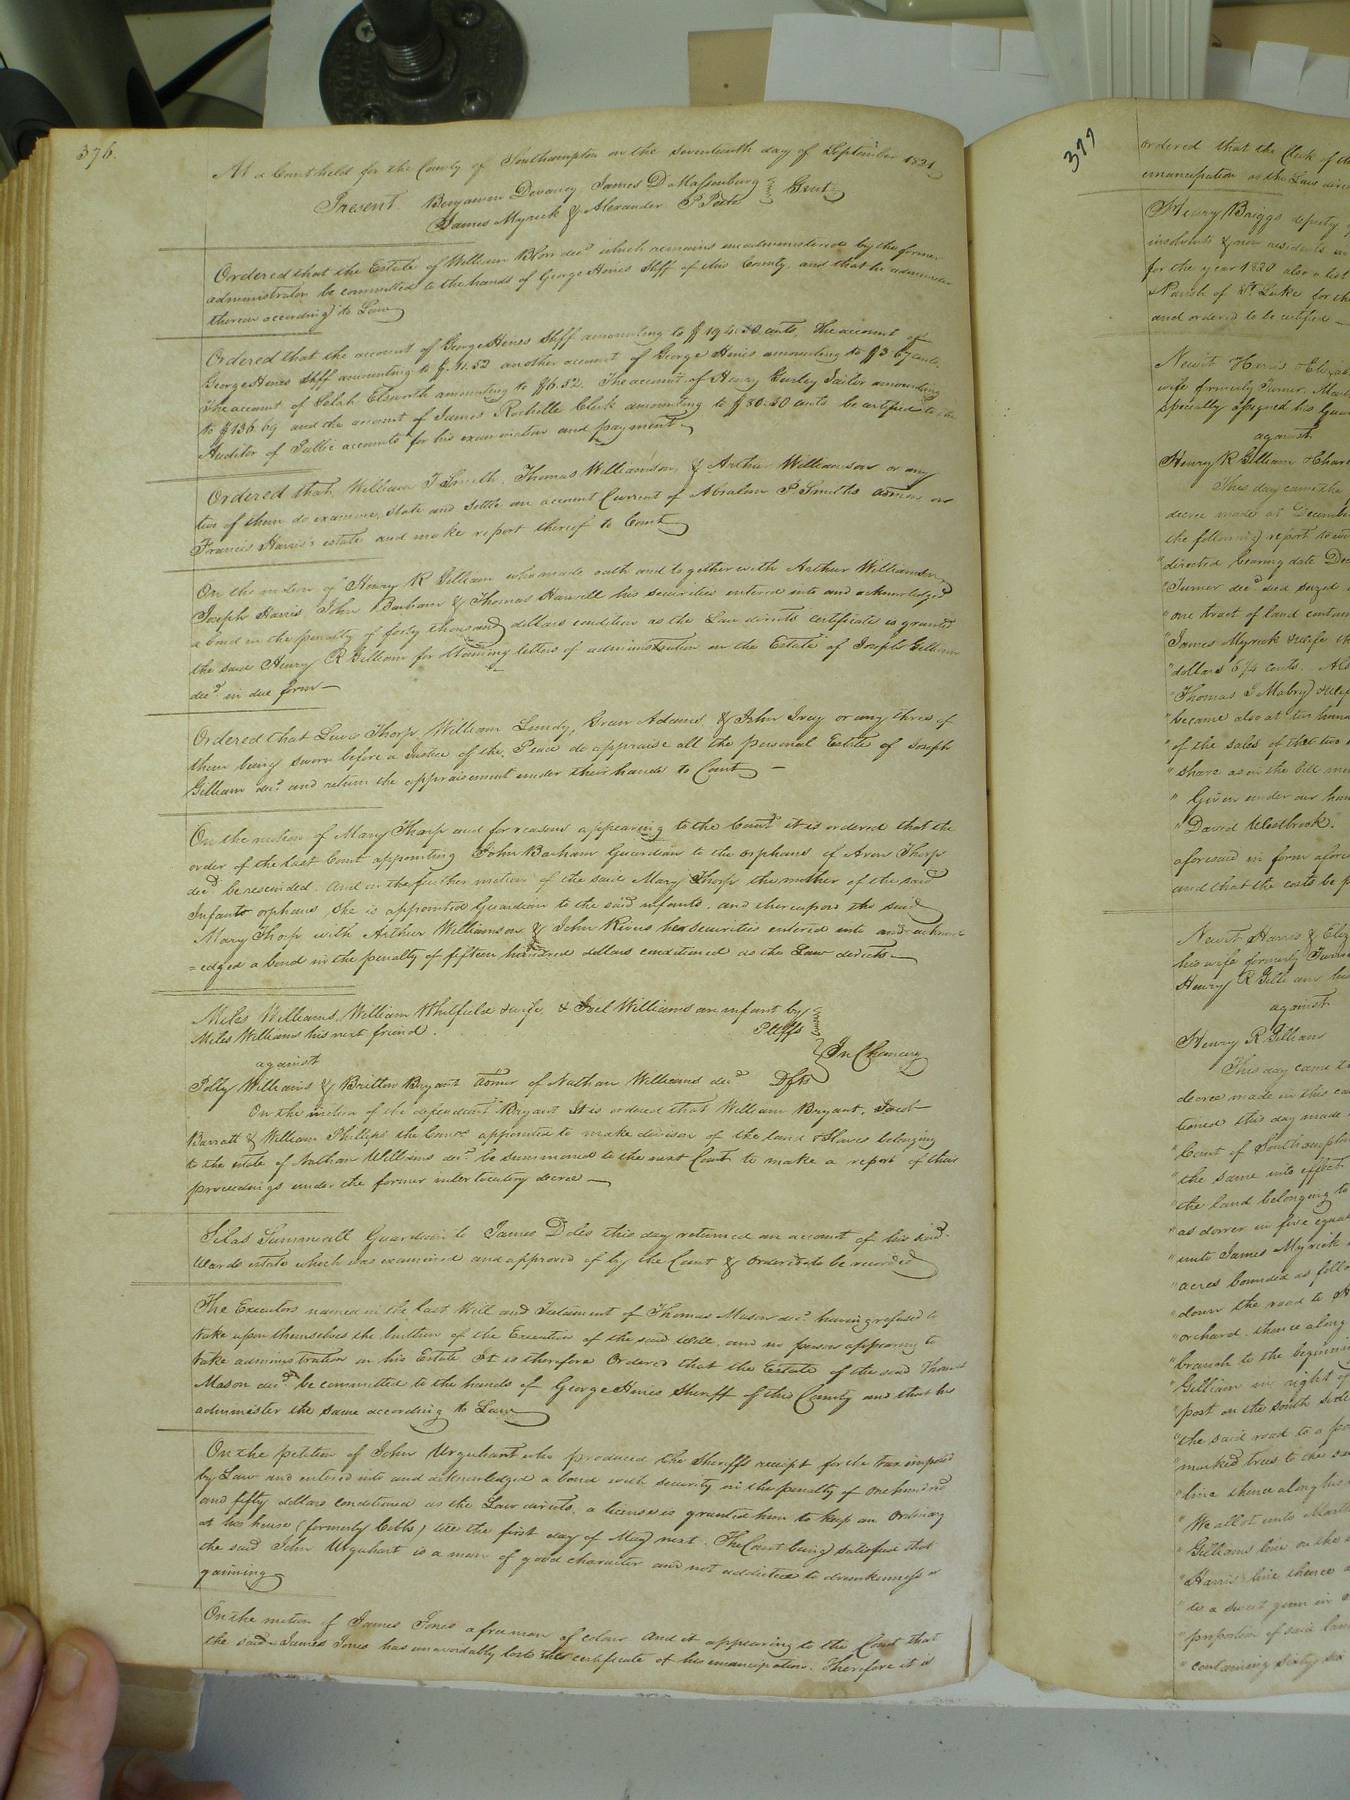 376.
At a Court held for the County of Southampton on the Seventeenth day of September 1821
Present Benjamin Devaney, James D Massenburg } Gent
James Myrick & Alexander P Peete
Ordered that the Estate of William decd. which remains unadministered by the former
administrator be committed to the hands of George Hines Shff of this County, and that he administer
thereon according to Law
Ordered that the account of George Hines Shff amounting to $ 194.50 cents, The account of
George Hines Shff amounting to $ 4.52 another account of George Hines amounting to $3.67 cents,
The account of Elsworth amounting to $6.52. The account of Henry Gurley Jailor amounting
to $136.69 and the account of James Rochelle Clerk amounting to $ 80.30 cents be certified to the
Auditor of Public accounts for his examination and payment
Ordered that William T Smith, Thomas Williamson, & Arthur Williamson or any
two of them do examine, state and settle an account Current of Abraham P. Smiths on
Francis Harris's estate and make report thereof to Court
On the motion of Henry R Gilliam who made oath and together with Arthur Williamson,
Joseph Harris John Barham & Thomas Harwell his securities entered into and acknowledged
a bond in the penalty of forty thousand dollars condition as the Law directs certificate is granted
the said Henry R Gilliam for obtaining letters of administration on the Estate of Joseph Gilliam
decd. in due form
Ordered that Lewis Thorp, William Lundy, Adams & John Ivey or any three of
them being sworn before a Justice of the Peace do appraise all the personal Estate of Joseph
Gilliam decd. and return the appraisement under their hands to Court
On the motion of Mary Thorp and for reasons appearing to the Court it is ordered that the
order of the last Court appointing John Barham Guardian to the orphans of Aron Thorp
decd. be rescinded. And on the further motion of the said Mary Thorp the mother of the said
Infant orphans, she is appointed Guardian to the said infants, and thereupon the said
Mary Thorp with Arthur Williamson & John Rivers her securities entered into and acknowl
=edged a bond in the penalty of fifteen hundred dollars conditioned as the Law directs
Miles Williams, William Whitfield & wife, & Joel Williams an infant by
Miles Williams his next friend. Pltffs
against } In Chancery
Polly Williams & Britten Bryant admr of Nathan Williams decd. Dfts
On the motion of the defendant Bryant It is ordered that William Bryant, Jacob
Barratt & William Phillips the Comrs appointed to make division of the land & Slaves belonging
to the estate of Nathan Williams decd. be summoned to the next Court to make a report of their
proceedings under the former interlocutory decree
Silas Summerell Guardian to James Doles this day returned an account of his said
Wards estate which was examined and approved of by the Court & Ordered to be recorded
The Executors named in the last Will and Testament of Thomas Mason decd. having refused to
take upon themselves the burthen of the Execution of the said Will, and no person appearing to
take administration on his Estate It is therefore Ordered that the Estate of the said Thomas
Mason decd. be committed to the hands of George Hines Sheriff of the County and that he
administer the same according to Law
On the petition of John Urquhart who produced the Sheriffs receipt for the tax imposed
by Law and entered into and acknowledged a bond with security in the penalty of one hundred
and fifty dollars conditioned as the Law directs, a license is granted him to keep an Ordinary
at his house (formerly Cobbs) till the first day of May next. The Court being satisfied that
the said John Urquhart is a man of good character and not addicted to drunkenness or
gaining
On the motion of James Jones a free man of colour And it appearing to the Court that
the said James Jones has unavoidably lost his certificate of his emancipation. Therefore it is
377
ordered that the Clerk of th
emancipation as the Law direc
Henry Briggs deputy
insolvents & non residents in
for the year 1820 also a list
Parish of St. Luke for th
and ordered to be certified
Newit Harris & Elizab
wife formerly Turner,
specially assigned his Guar
against
Henry R Gilliam & Char
This day came the
decree made at December
the following report to wit
"directed bearing date Dec
"Turner decd. died seized
"one tract of land contain
"James Myrick & wife th
"dollars 6¼ cents. Als
"Thomas J Mabry & wife
"became also at his hand
"of the sales of that two
"share as in the bill men
"Given under our han
"David Westbrook.
aforesaid in form afore
and that the costs be p
Newit Harris & Eliz
his wife formerly Turner
Henry R Gilliam his
against
Henry R Gilliam
This day came t
decree made in this cau
tioned this day made
"Court of Southampton
"the same into effect
"the land belonging to
"as dower in five equal
"unto James Myrick
"acres bounded as follo
"down the road to H
"orchard, thence along
"branch to the beginnin
"Gilliam in right of
"post on the south side
"the said road to a po
"marked trees to the sa
"line thence along his
"We allot unto
"Gilliams line on the
"Harris' line thence
"to a sweet gum in
"proportion of said lan
"containing sixty six